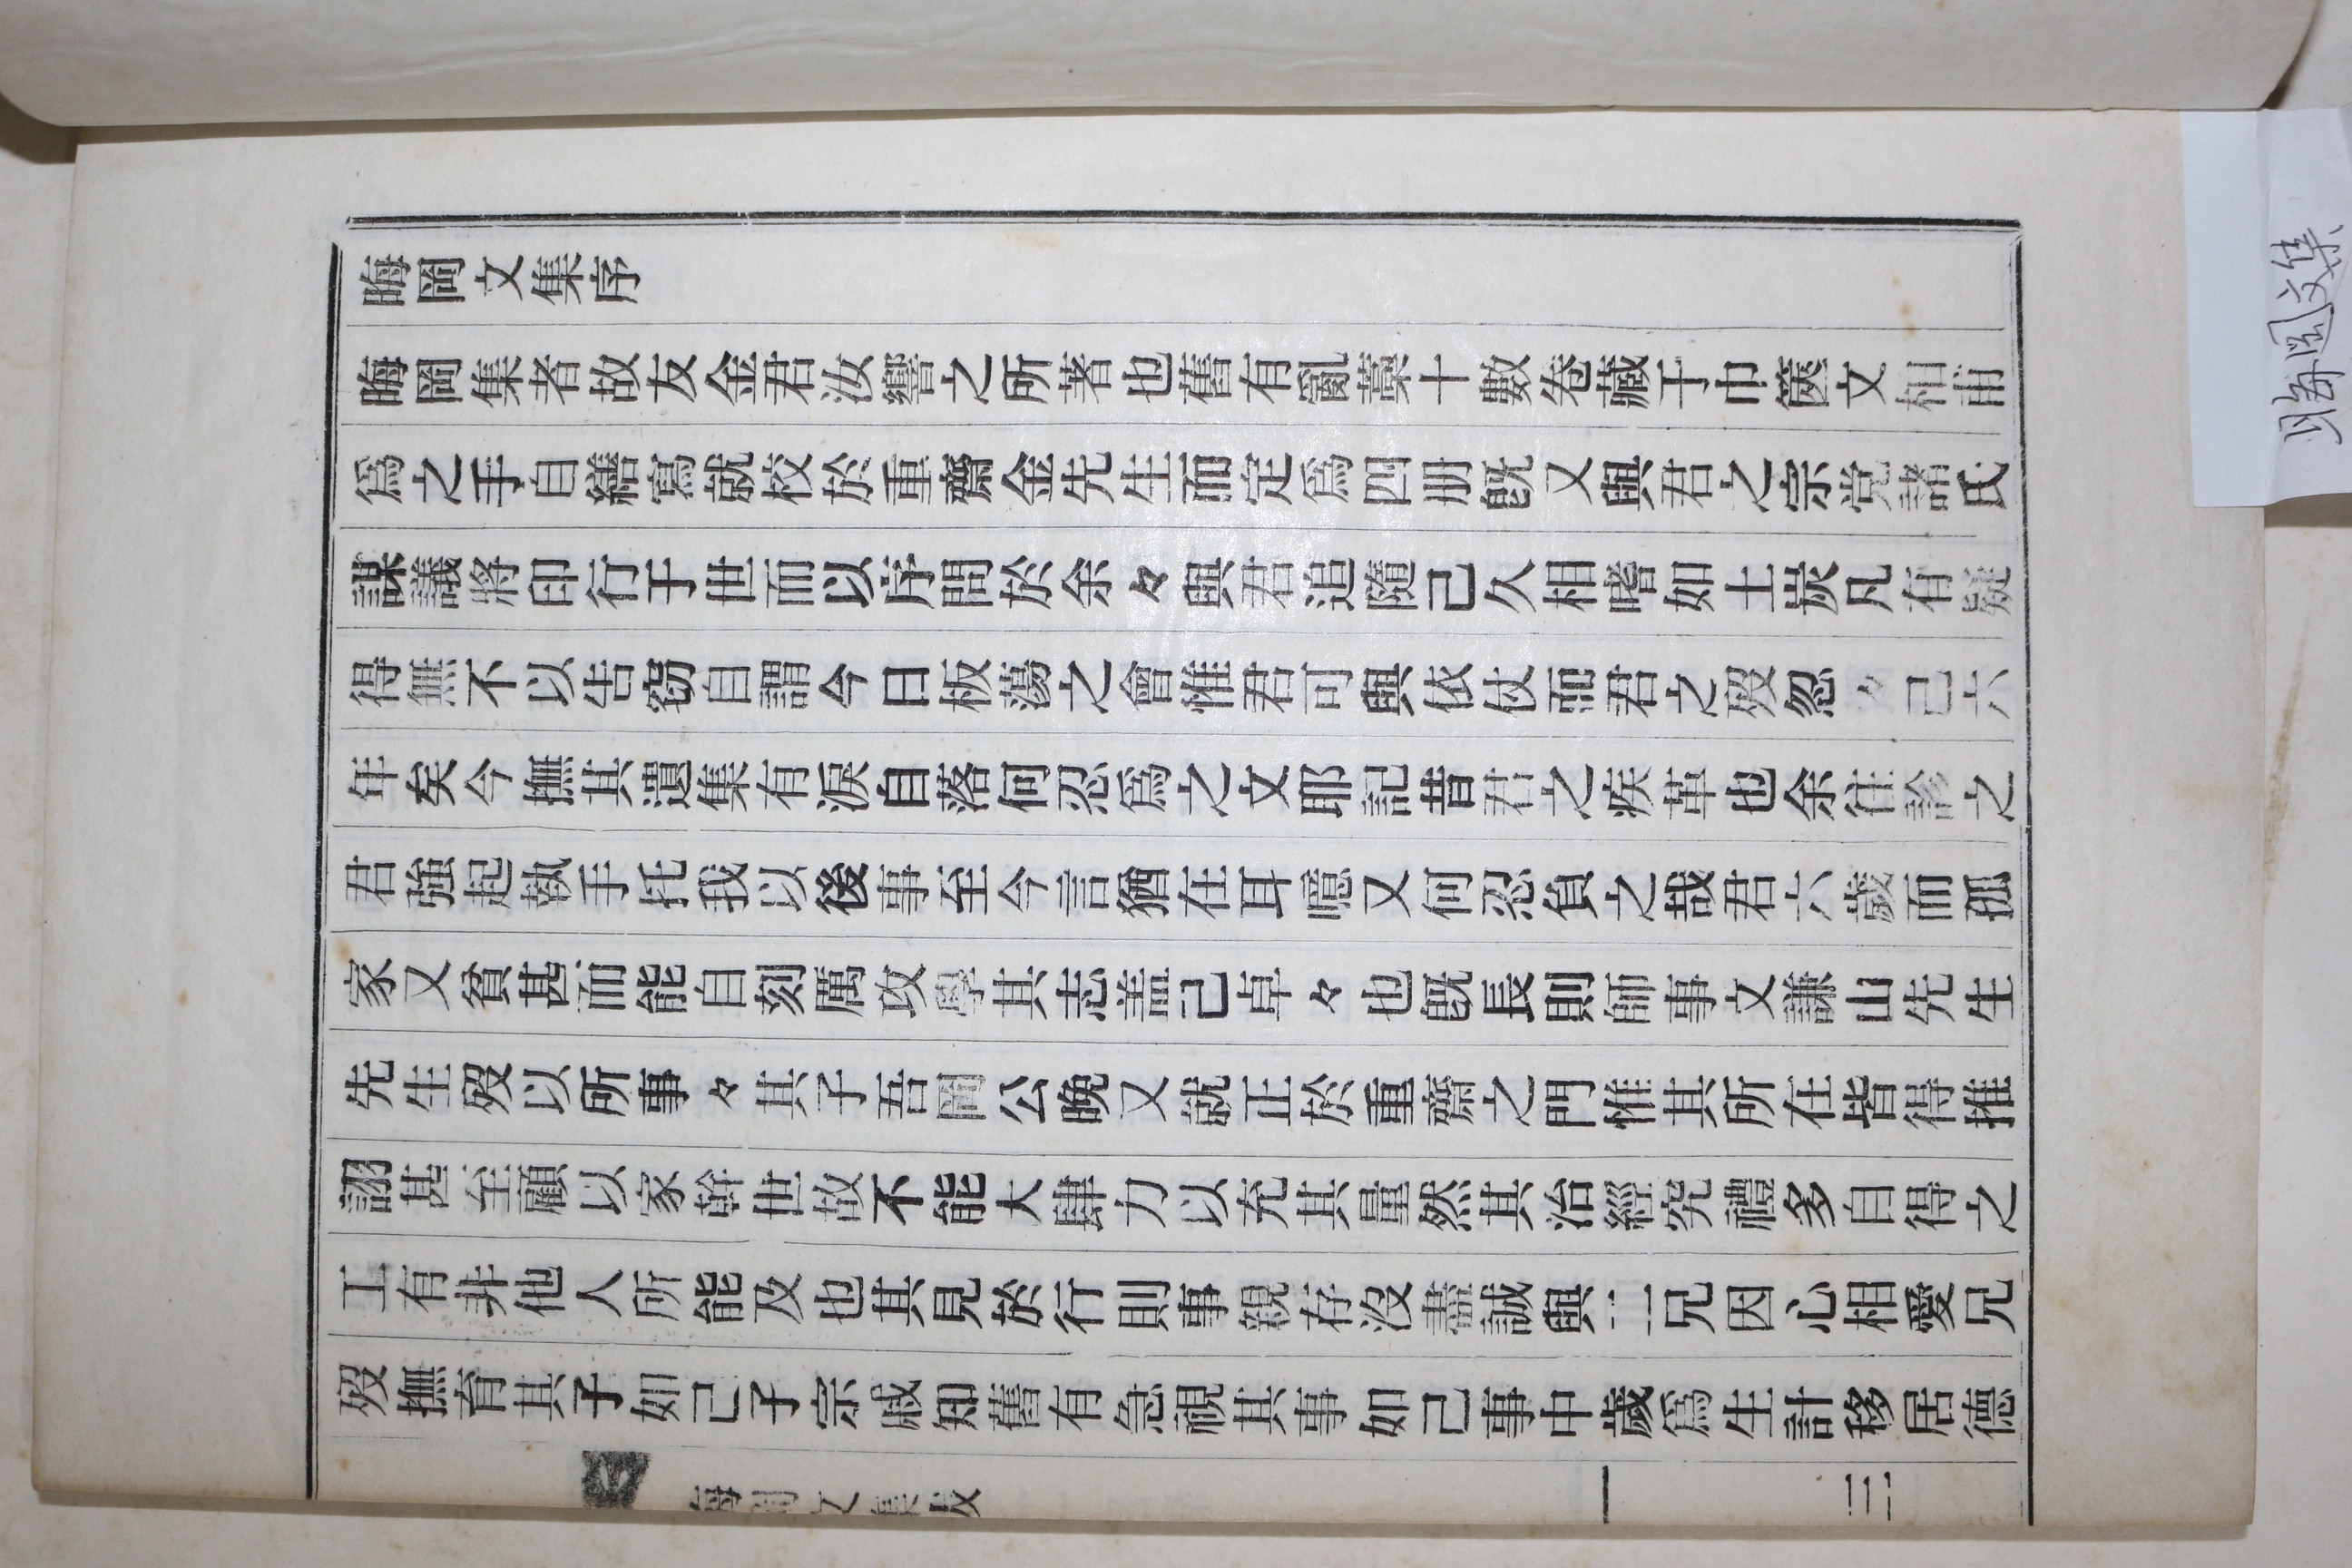 晦岡文集序
晦岡集者故友金君汝響之所著也舊有亂藁十數卷藏于巾篋文相甫
爲之手自繕寫就校於重齋金先生而定爲四册旣又與君之宗党諸氏
謀議將印行于世而以序問於余々與君追隨己久相嗜如土炭凡有疑
得無不以告窃自謂今日板蕩之會惟君可與依仗而君之歿忽々己六
年矣今撫其遺集有淚自落何忍爲之文耶記昔君之疾革也余往診之
君強起執手托我以後事至今言猶在耳噫又何忍負之哉君六歲而孤
家又貧甚而能自刻厲攻學其志盖己卓々也旣長則師事文謙山先生
先生歿以所事々其子吾岡公晚又就正於重齋之門惟其所在皆得推
詡甚至顧以家幹世故不能大肆力以充其量然其治經究禮多自得之
工有非他人所能及也其見於行則事親存沒盡誠與二兄因心相愛兄
歿撫育其子如己子宗戚知舊有急視其事如己事中歲爲生計移居德
晦岡文集
三
晦岡文集